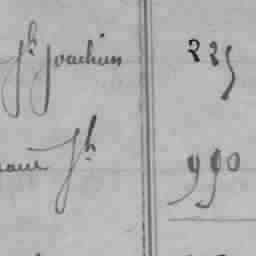 Jh Joachim 225
Jh 990